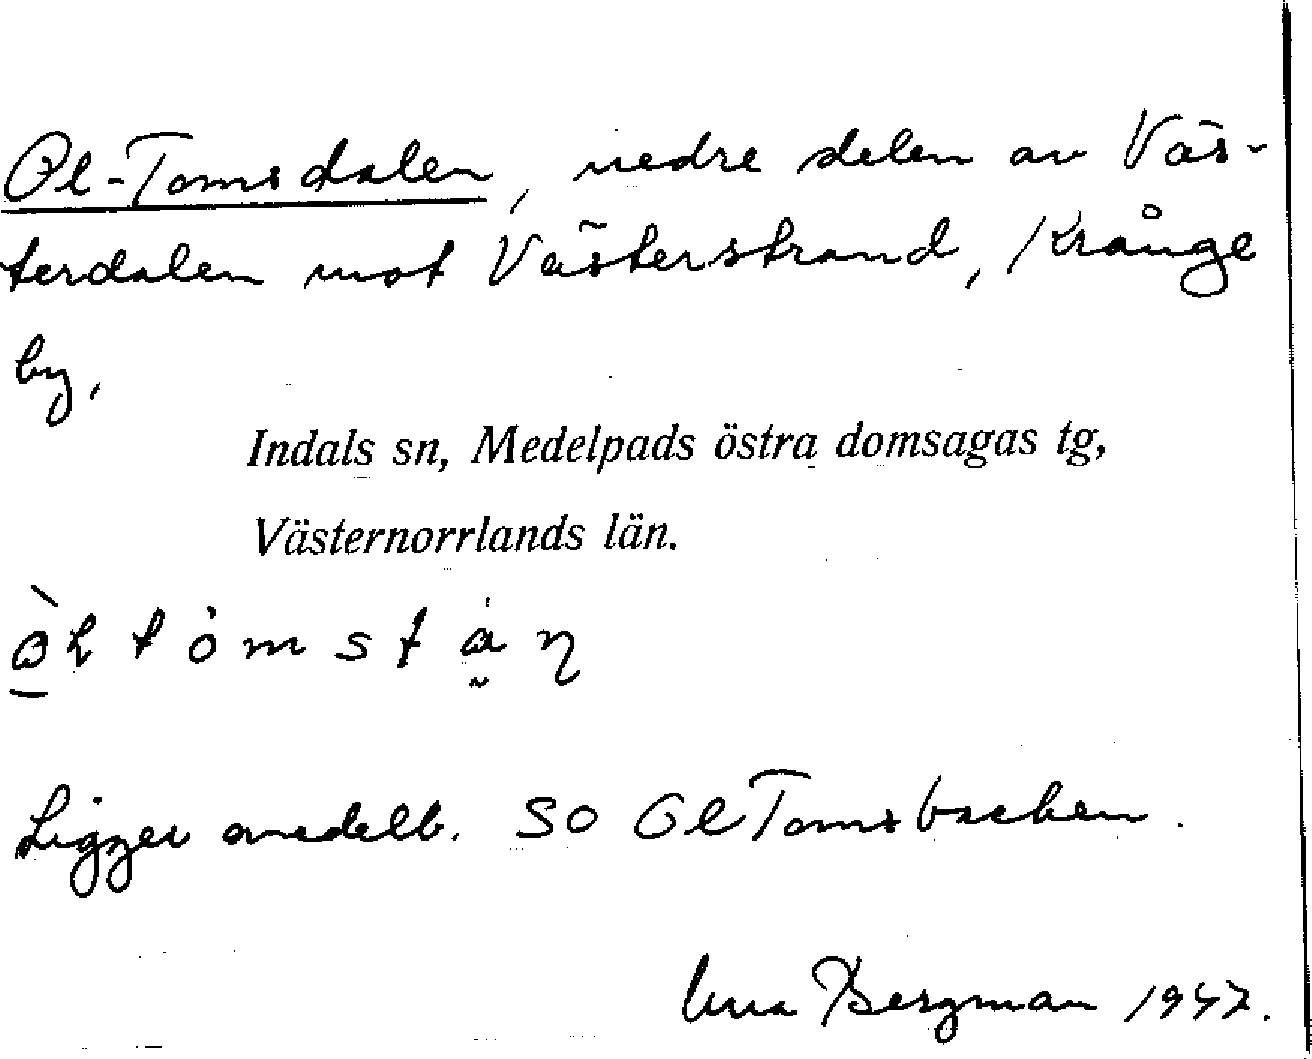 Ol-Tomsdalen, nedre delen av Väs-
terdalen mot Västerstrand, Krånge
by,
Indals sn, Medelpads östra domsagas tg,
Västernorrlands län.
Ligger omedelb. SO Ol Tomsbacken.
Bergman 1947.